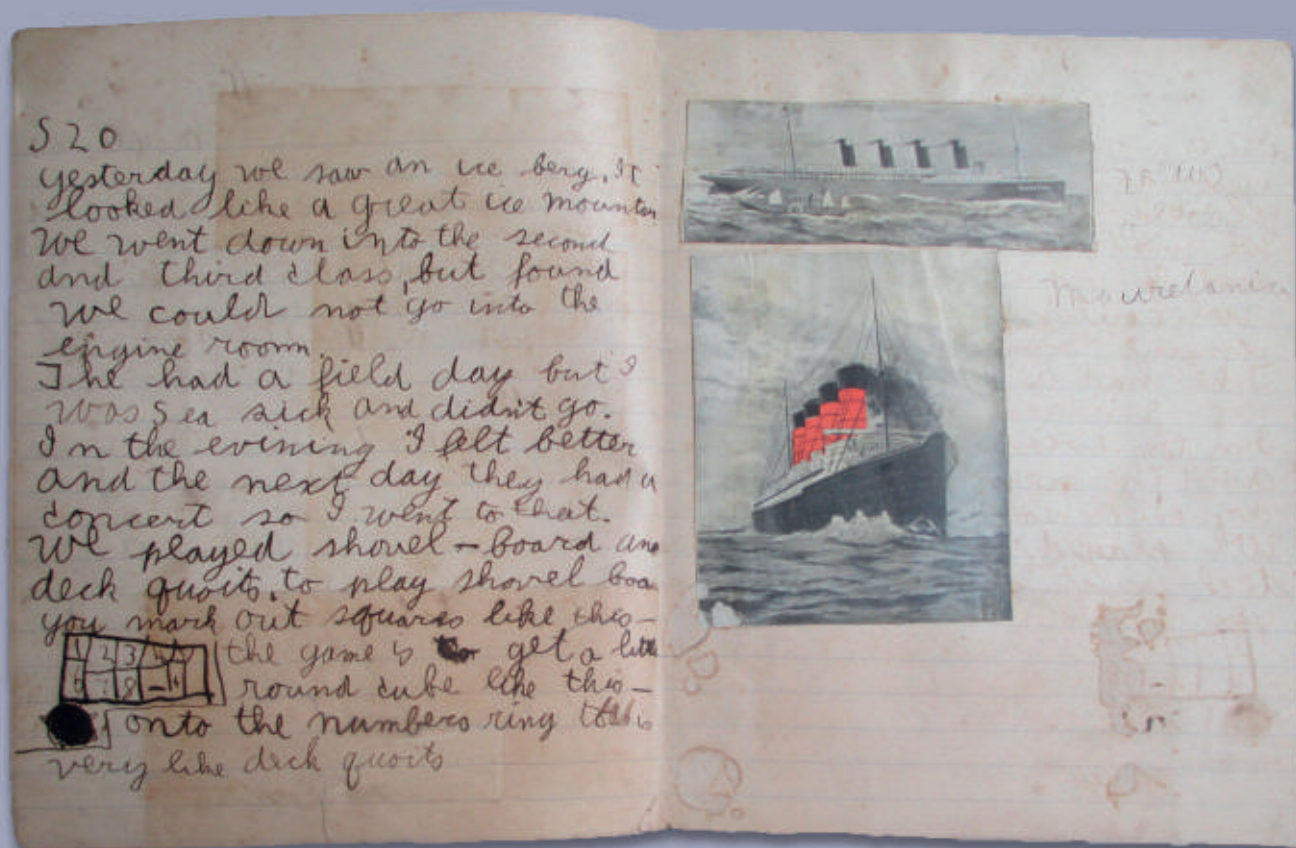 S 20
yesterday we saw an ice berg. It
looked like a great ice mountain
We went down into the second
and third class, but found
we could not go into the
engine room.
The had a field day but I
was sea sick and didn't go.
In the evining I felt better
and the next day they had a
concert so I went to that.
We played shovel-board and
deck quoits. to play shovel boa
you mark out squares like this-
1 2 3
the game is to get a little
6 7 8 -
round cube like this-
onto the numbers ring
very like deck quoits
Mauretania